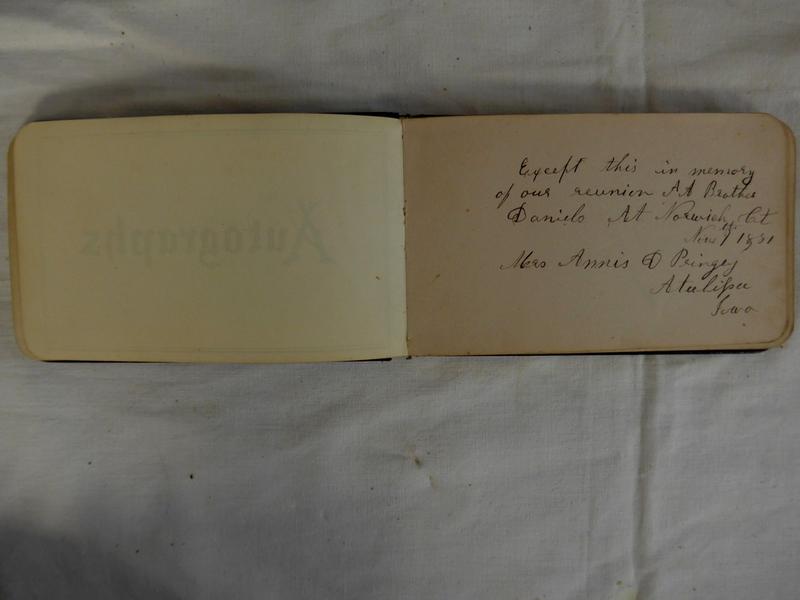 Autographs
Except this in memory
of our reunion At Brother
Daniels At Norwich, Ct
Nov 7th 1881
Mrs Annis D Pringey
Atalissa
Iowa